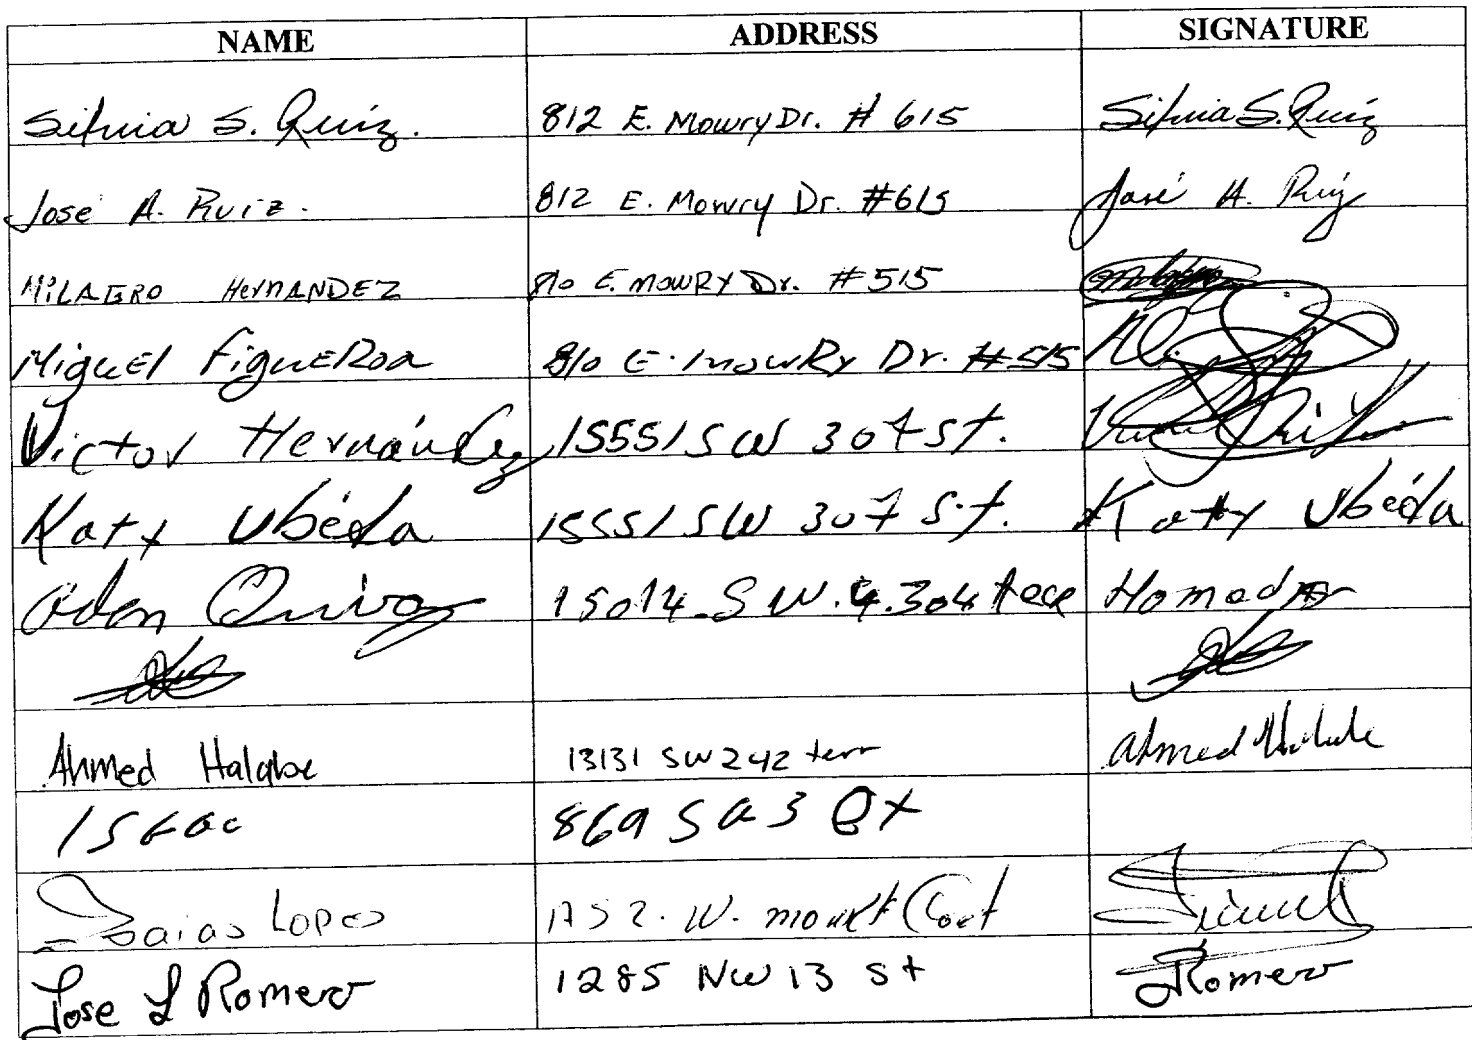 NAME ADDRESS SIGNATURE
Silvia S. Ruiz. 812 E. Mowry Dr. # 615 Silvia S. Ruiz
José A. Ruiz. 812 E. Mowry Dr. #615 José A. Ruiz
MILAGRO HerNANDEZ 810 E. MOWRY Dr. #515
MiguEl FiguERoa 810 E. MowRy Dr. #515
Victor Hernández 15551 SW 307 St.
Katy Ubéda 15551 SW 307 S.t. Katy Ubéda
15014 S W. 304
Ahmed Halabe 13131 SW 242 terr Ahmed Halabe
ISaac 869
Isaias Lopes W.
Jose L Romero 1285 NW 13 St Romero